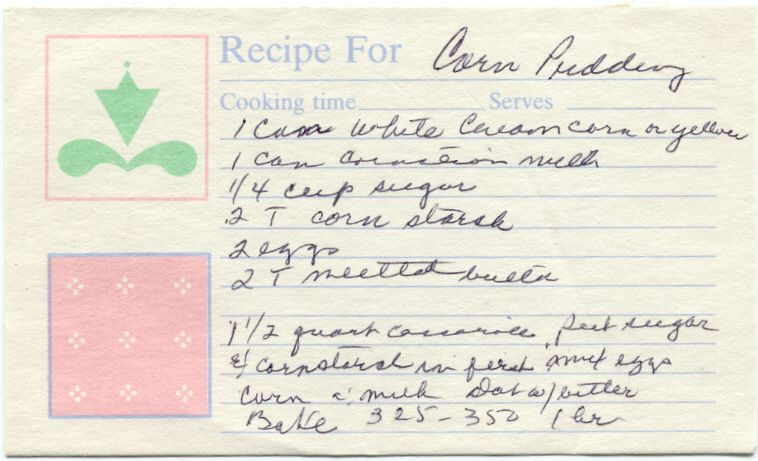 Recipe For Corn Pudding
Cooking time Serves
1 Can White Cream corn or yellow
1 can Carnation milk
1/4 cup sugar
2 T corn starch
2 eggs
2 T melted butter
1 1/2 quart casserole, put sugar
& cornstarch in first, mix eggs
corn & milk Dot w/ butter
Bake 325-350 1 hr